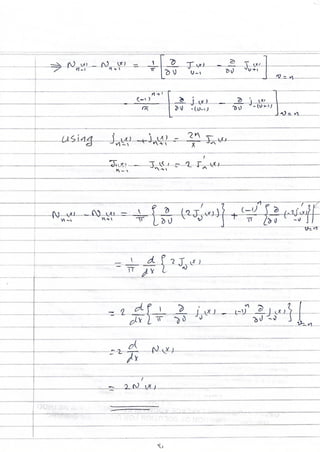 ⇒ N_{n-1}^{(x)} - N_{n+1}^{(x)} = 1/π [ ∂/∂ν J_{ν-1}^{(x)} - ∂/∂ν J_{ν+1}^{(x)} ]_{ν=n}
- (-1)^{n+1}/π [ ∂/∂ν J_{-(ν-1)}^{(x)} - ∂/∂ν J_{-(ν+1)}^{(x)} ]_{ν=n}
using J_{n-1}^{(x)} + J_{n+1}^{(x)} = 2n/x J_n^{(x)}
J_{n-1}^{(x)} - J_{n+1}^{(x)} = 2 J_n'^{(x)}
N_{n-1}^{(x)} - N_{n+1}^{(x)} = 1/π { ∂/∂ν (2J_ν'^{(x)}) } + (-1)^n/π { ∂/∂ν (-2J'_{-ν}^{(x)}) } |_{ν=n}
= 1/π d/dx { 2 J_ν^{(x)}
= 2 d/dx { 1/π ∂/∂ν J_ν^{(x)} - (-1)^n ∂/∂ν J_{-ν}^{(x)} } |_{ν=n}
= 2 d/dx N^{(x)}
= 2N'^{(x)}